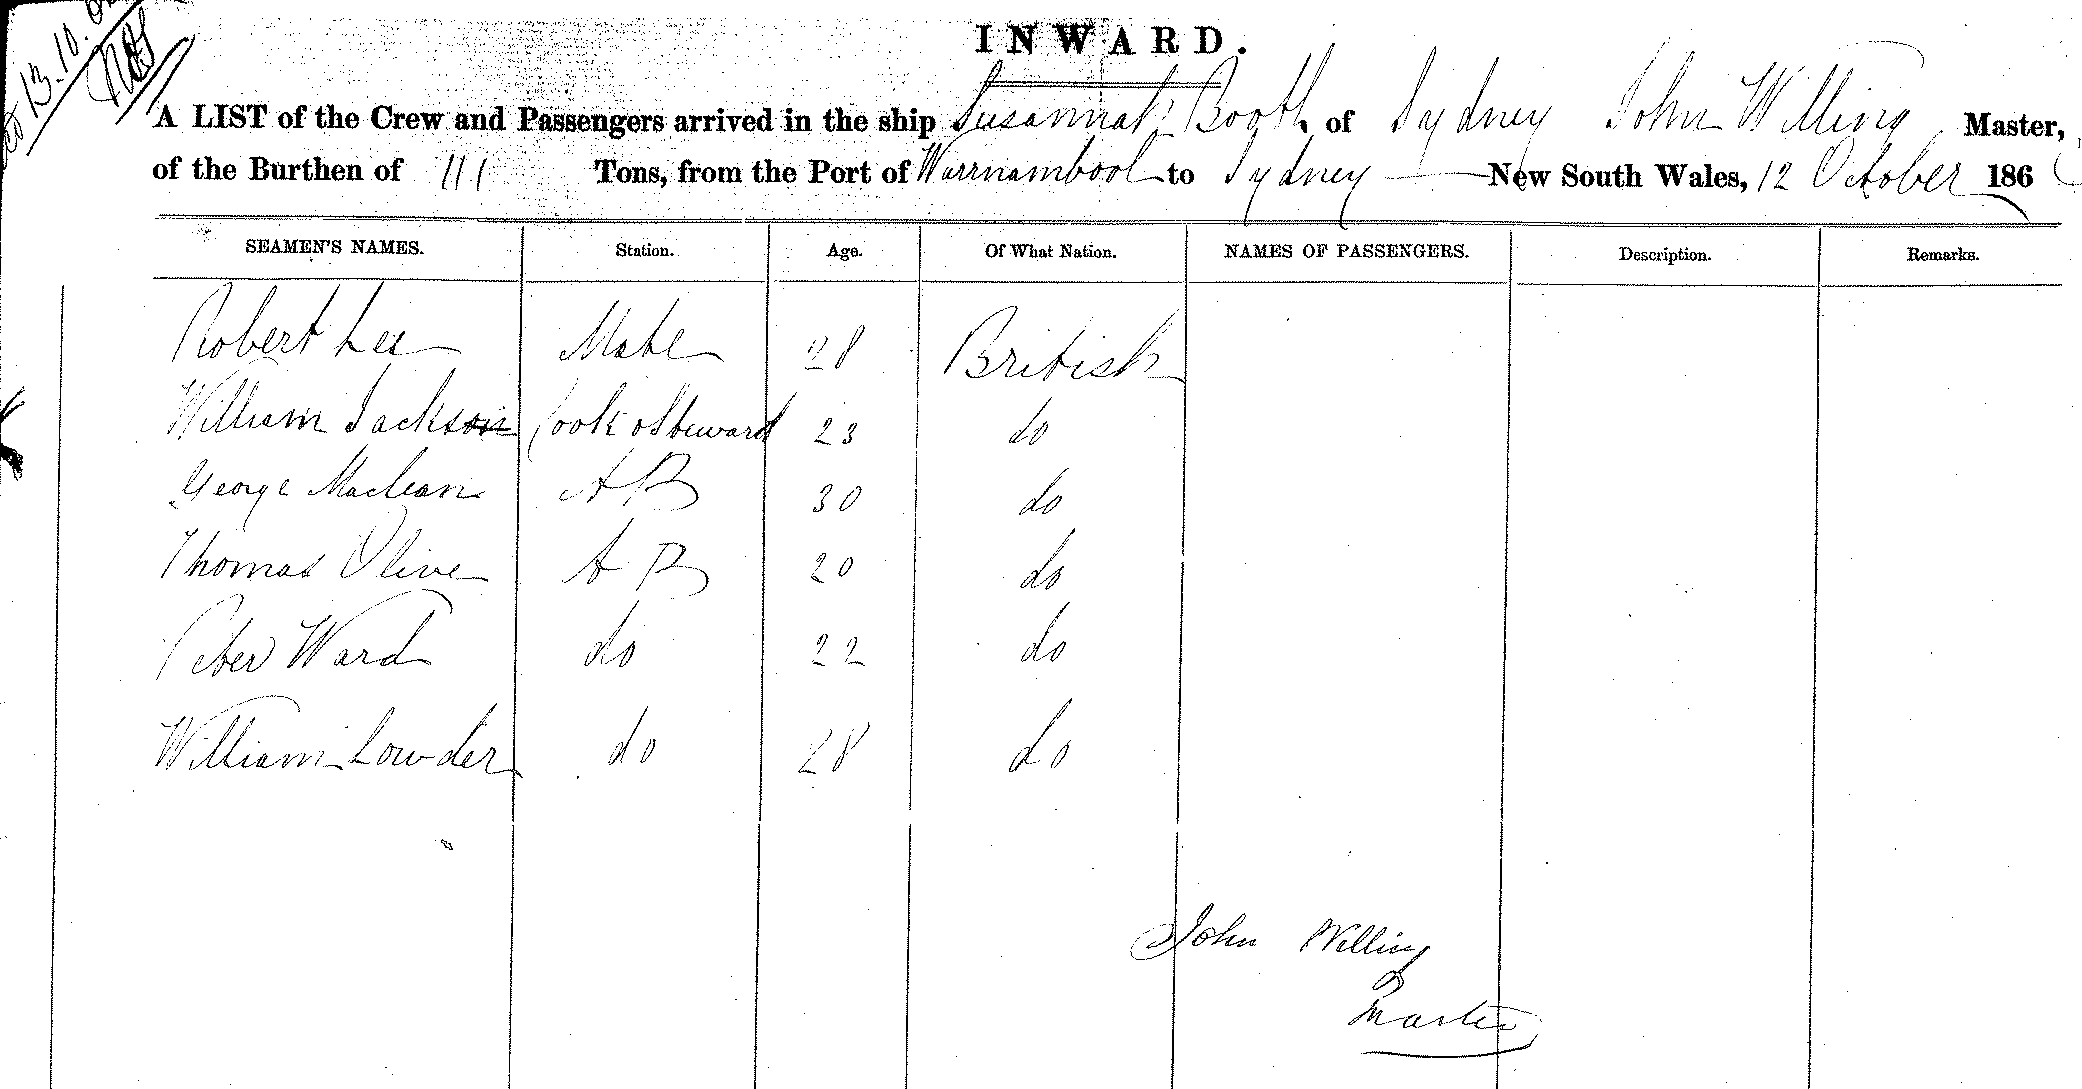 13.10.
INWARD.
A LIST of the Crew and Passengers arrived in the ship Susannah Booth of Sydney John Willing Master,
of the Burthen of 111 Tons, from the Port of Warrnambool to Sydney New South Wales, 12 October 186
SEAMEN'S NAMES. Station. Age. Of What Nation. NAMES OF PASSENGERS. Description. Remarks.
Robert Lee Mate 28 British
William Jackson Cook & Steward 23 do
George Maclean A B 30 do
Thomas Olive A B 20 do
Peter Ward do 22 do
William Lowder do 28 do
John Willing
Master